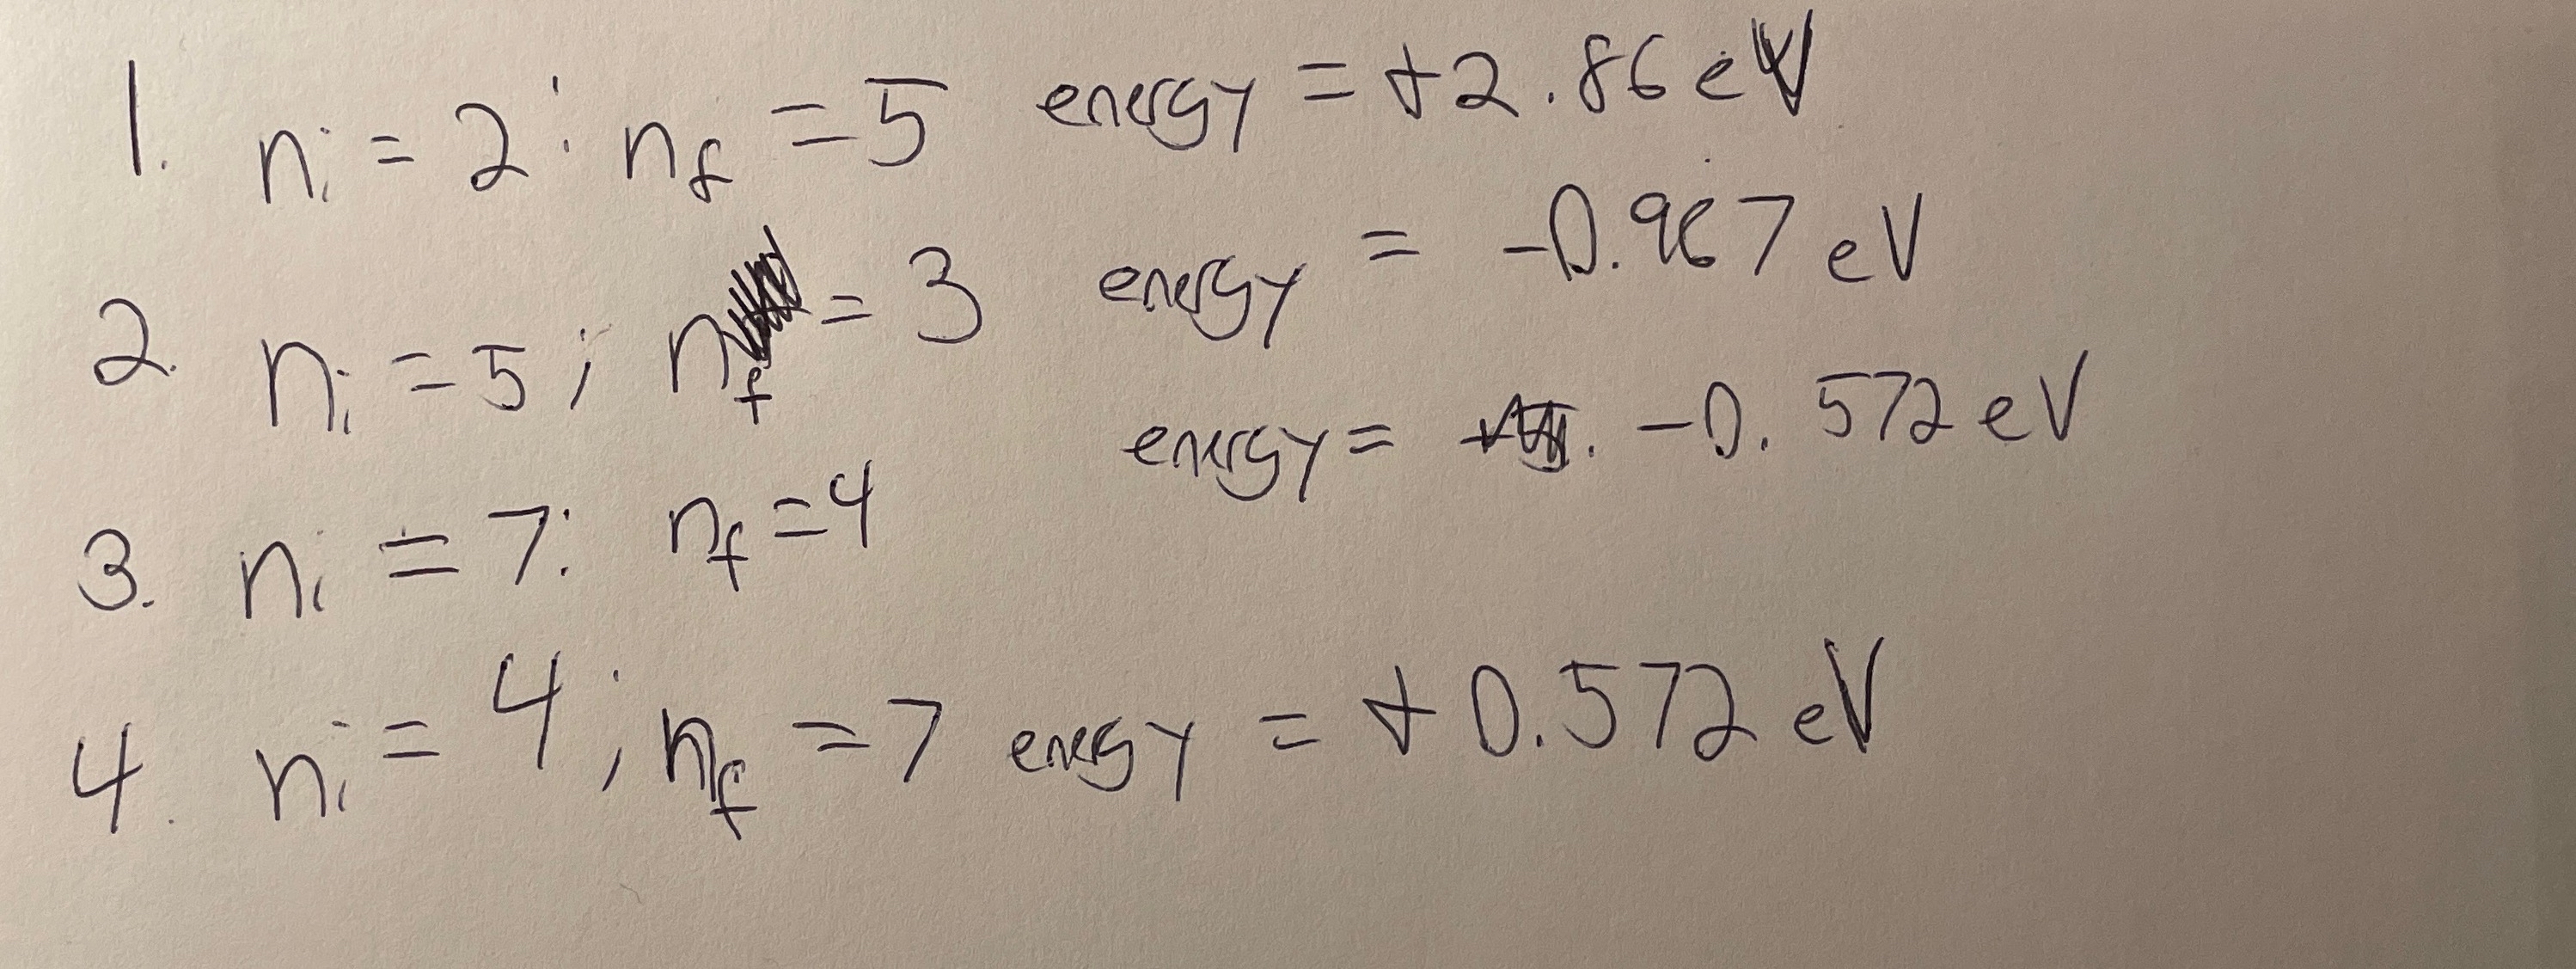 1. ni = 2; nf = 5 energy = +2.86 eV
2. ni = 5; nf = 3 energy = -0.967 eV
3. ni = 7; nf = 4 energy = -0.572 eV
4. ni = 4; nf = 7 energy = +0.572 eV